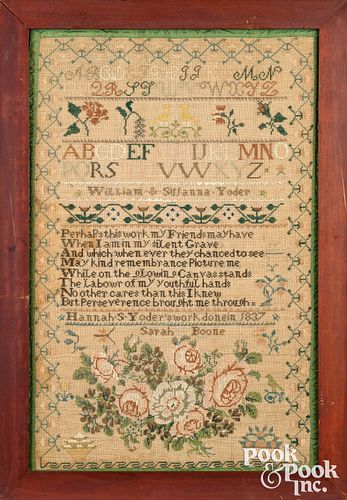 MN
QRST WXYZ
ABCDEF IJKLMNO
PQRS VVWXYZ
William & Susanna Yoder
Perhaps this work my Friends may have
When I am in my silent Grave
And which when ever they chanced to see
May kind remembrance Picture me
While on the glowing Canvas stands
The Labour of my youthful hands
No other cares than this I knew
But Perseverence brought me through
Hannah S Yoder's work done in 1837
Sarah Boone
POOK
& POOK
INC.